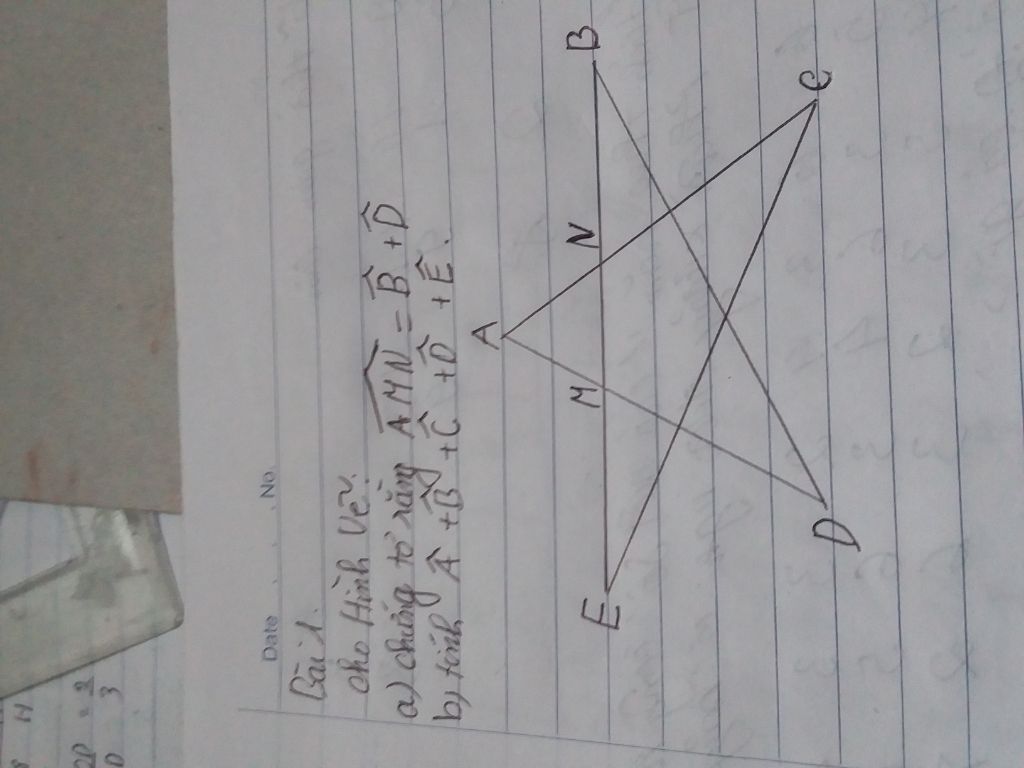 Date No.
Bài 1.
cho Hình Vẽ.
a) chứng tỏ rằng AMN = B̂ + D̂
b) tính Â + B̂ + Ĉ + D̂ + Ê.
A
E M N B
D C